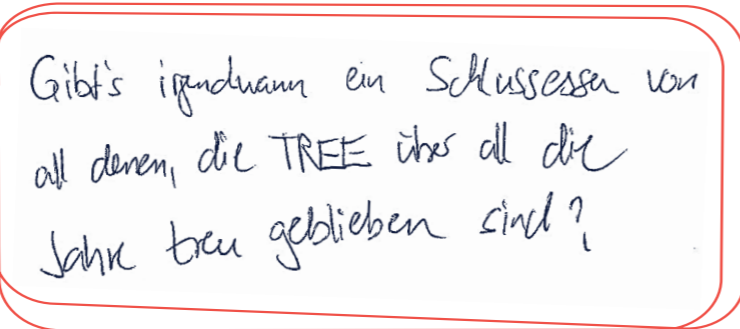 Gibt's irgendwann ein Schlussessen von
all denen, die TREE über all die
Jahre treu geblieben sind?